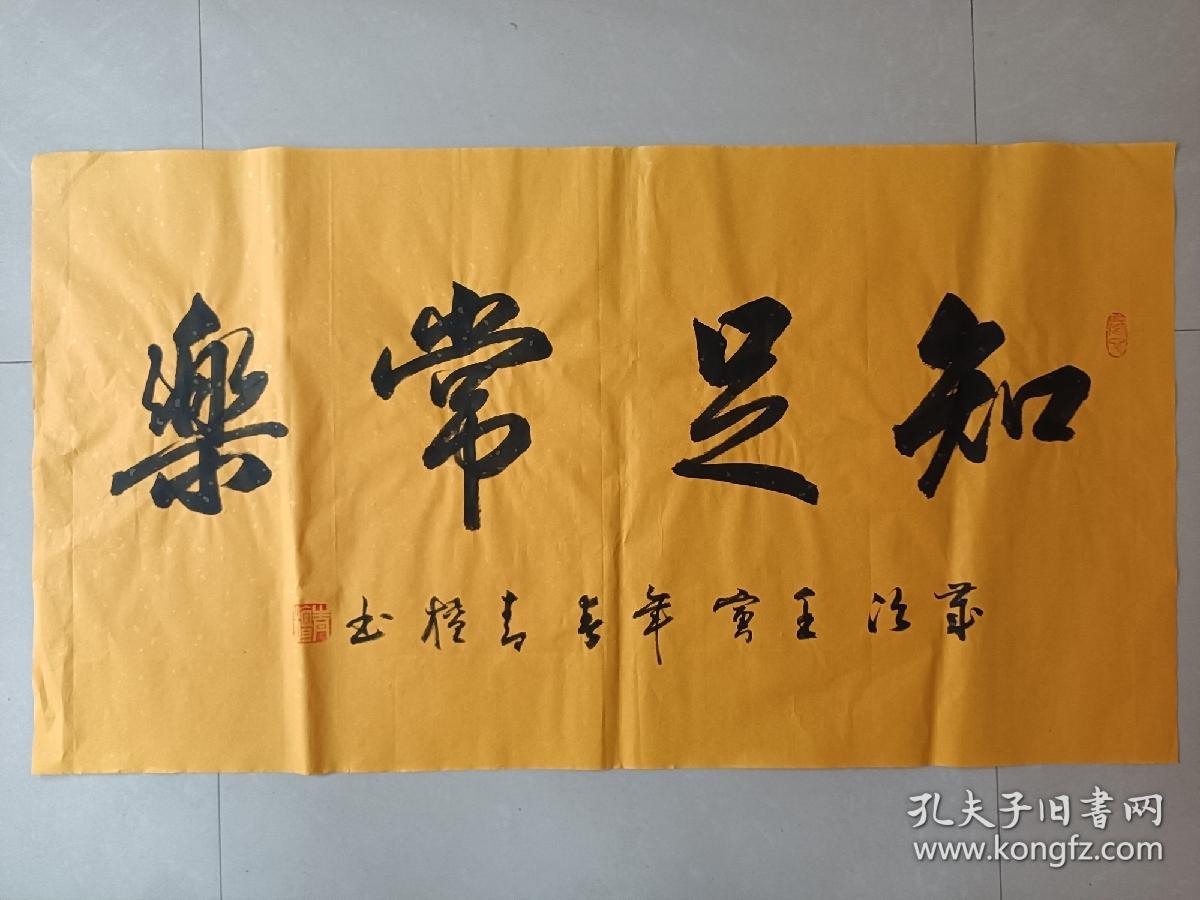 知足常樂
歲次壬寅年春青橙书
孔夫子旧書网
www.kongfz.com